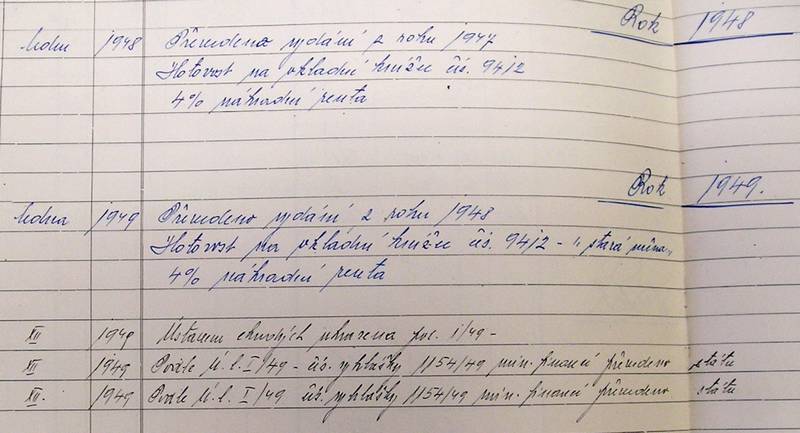 Rok 1948
ledna 1948 Převedeno vydání z roku 1947
Hotovost na vkladní knížce čís. 9412
4% náhradní renta
Rok 1949.
ledna 1949 Převedeno vydání z roku 1948
Hotovost na vkladní knížce čís. 9412 - "stará měna"
4% náhradní renta
XII 1949 Ústavem chudých uhrazena pol. 1/49 -
XII 1949 Podle Ú. l. I/49 - čís. vyhlášky 1154/49 min. financí převedeno státu
XII. 1949 Podle Ú. l. I/49 čís. vyhlášky 1154/49 min. financí převedeno státu